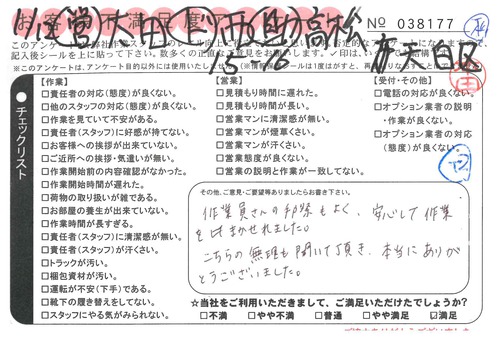 No 038177
記入後シールを上に貼って下さい。
【作業】
□責任者の対応(態度)が良くない。
□他のスタッフの対応(態度)が良くない。
□作業を見ていて不安がある。
□責任者(スタッフ)に好感が持てない。
□お客様への挨拶が出来ていない。
□ご近所への挨拶・気遣いが無い。
□作業開始前の内容確認がなかった。
□作業開始時間が遅れた。
□荷物の取り扱いが雑である。
□お部屋の養生が出来ていない。
□作業時間が長すぎる。
□責任者(スタッフ)に清潔感が無い。
□責任者(スタッフ)が汗くさい。
□トラックが汚い。
□梱包資材が汚い。
□運転が不安(下手)である。
□靴下の履き替えをしてない。
□スタッフにやる気がみられない。
チェックリスト
【営業】
□見積もり時間に遅れた。
□見積もり時間が長い。
□営業マンに清潔感が無い。
□営業マンが煙草くさい。
□営業マンが汗くさい。
□営業態度が良くない。
□営業の説明と作業が一致してない。
【受付・その他】
□電話の対応が良くない。
□オプション業者の説明
・作業が良くない。
□オプション業者の対応
(態度)が良くない。
その他、ご意見・ご要望等ありましたらお書き下さい。
作業員さんの手際もよく、安心して作業
をまかせれました。
こちらの無理も聞いて頂き、本当にありが
とうございました。
☆当社をご利用いただきまして、ご満足いただけたでしょうか?
□不満 □やや不満 □普通 □やや満足 ☑満足